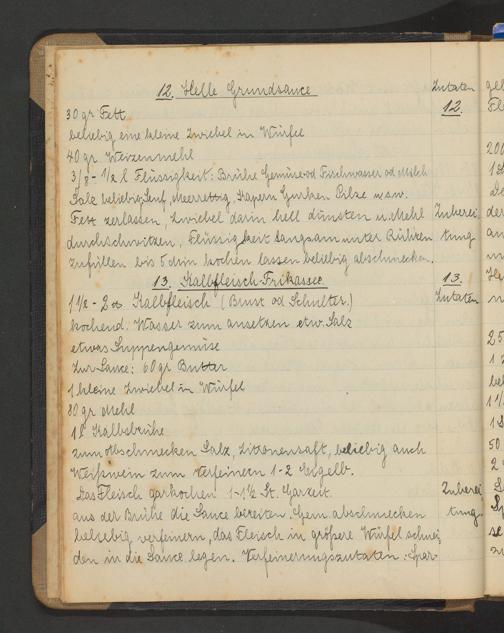 12. Helle Grundsauce
Zutaten
12.
30 gr Fett
beliebig eine kleine Zwiebel in Würfel
40 gr. Weizenmehl
3/8 - 1/2 l Flüssigkeit: Brühe Gemüse od Fischwasser od Milch
Salz beliebig Senf, Meerrettig, Kapern Gurken Pilze usw.
Fett zerlassen, Zwiebel darin hell dünsten u. Mehl
durchschwitzen, Flüssigkeit langsam unter Rühren
zufüllen bis 5 min kochen lassen beliebig abschmecken.
Zuberei
tung
13. Kalbfleisch-Frikassee
13.
Zutaten
1 1/2 - 2 Kalbfleisch (Brust od Schulter)
kochend. Wasser zum ansetzen etw. Salz
etwas Suppengemüse
Zur Sauce: 60 gr Butter
1 kleine Zwiebel in Würfel
80 gr Mehl
1 l Kalbsbrühe
zum Abschmecken Salz, Zitronensaft, beliebig auch
Weißwein zum Verfeinern 1-2 Eigelb.
Das Fleisch garkochen 1-1 1/2 St. Garzeit
aus der Brühe die Sauce bereiten. Gern abschmecken
beliebig verfeinern, das Fleisch in größere Würfel schnei
den in die Sauce legen. Verfeinerungszutaten: Spar-
Zuberei
tung.